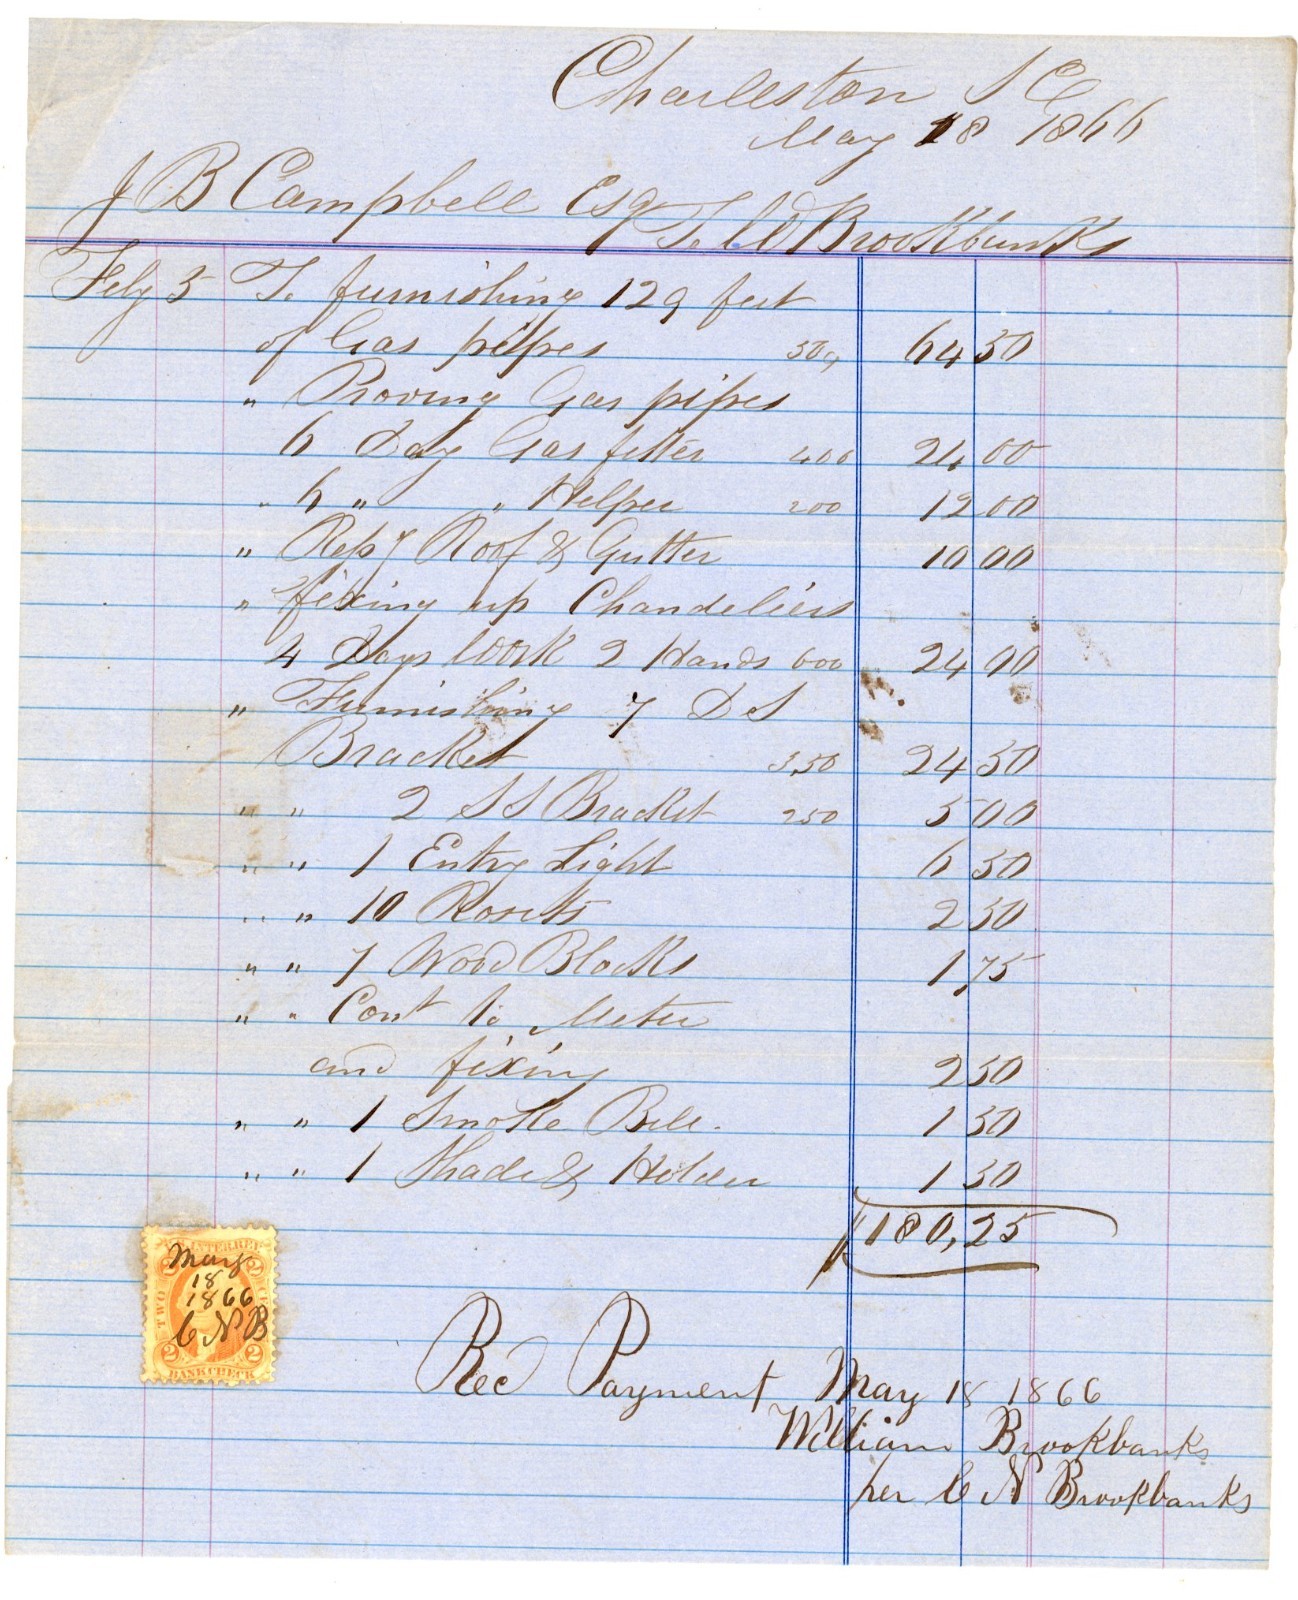 Charleston S C
May 18 1866
J B Campbell Esq
To W Brookbanks
Feby 5 To furnishing 129 feet
of Gas pipes 50c 64 50
" Proving Gas pipes
6 Day Gas fitter 400 24 00
" 6 " " Helper 200 12 00
" Repg Roof & Gutter 10 00
" fixing up Chandeliers
4 Days Work 2 Hands 600 24 00
" Furnishing 7 D S
Bracket 3,50 24 50
" " 2 S S Bracket 250 5 00
" " 1 Entry Light 6 50
" " 10 Rosets 2 50
" " 7 Wood Blocks 1,75
" " Cont to Meter
and fixing 2 50
" " 1 Smoke Bell. 1 50
" " 1 Shade & Holder 1 50
$180,25
U.S. INTER REV.
2 2
TWO
May
18
1866
C N B
2 2
BANK CHECK
Recd Payment May 18 1866
William Brookbanks
per C N Brookbanks